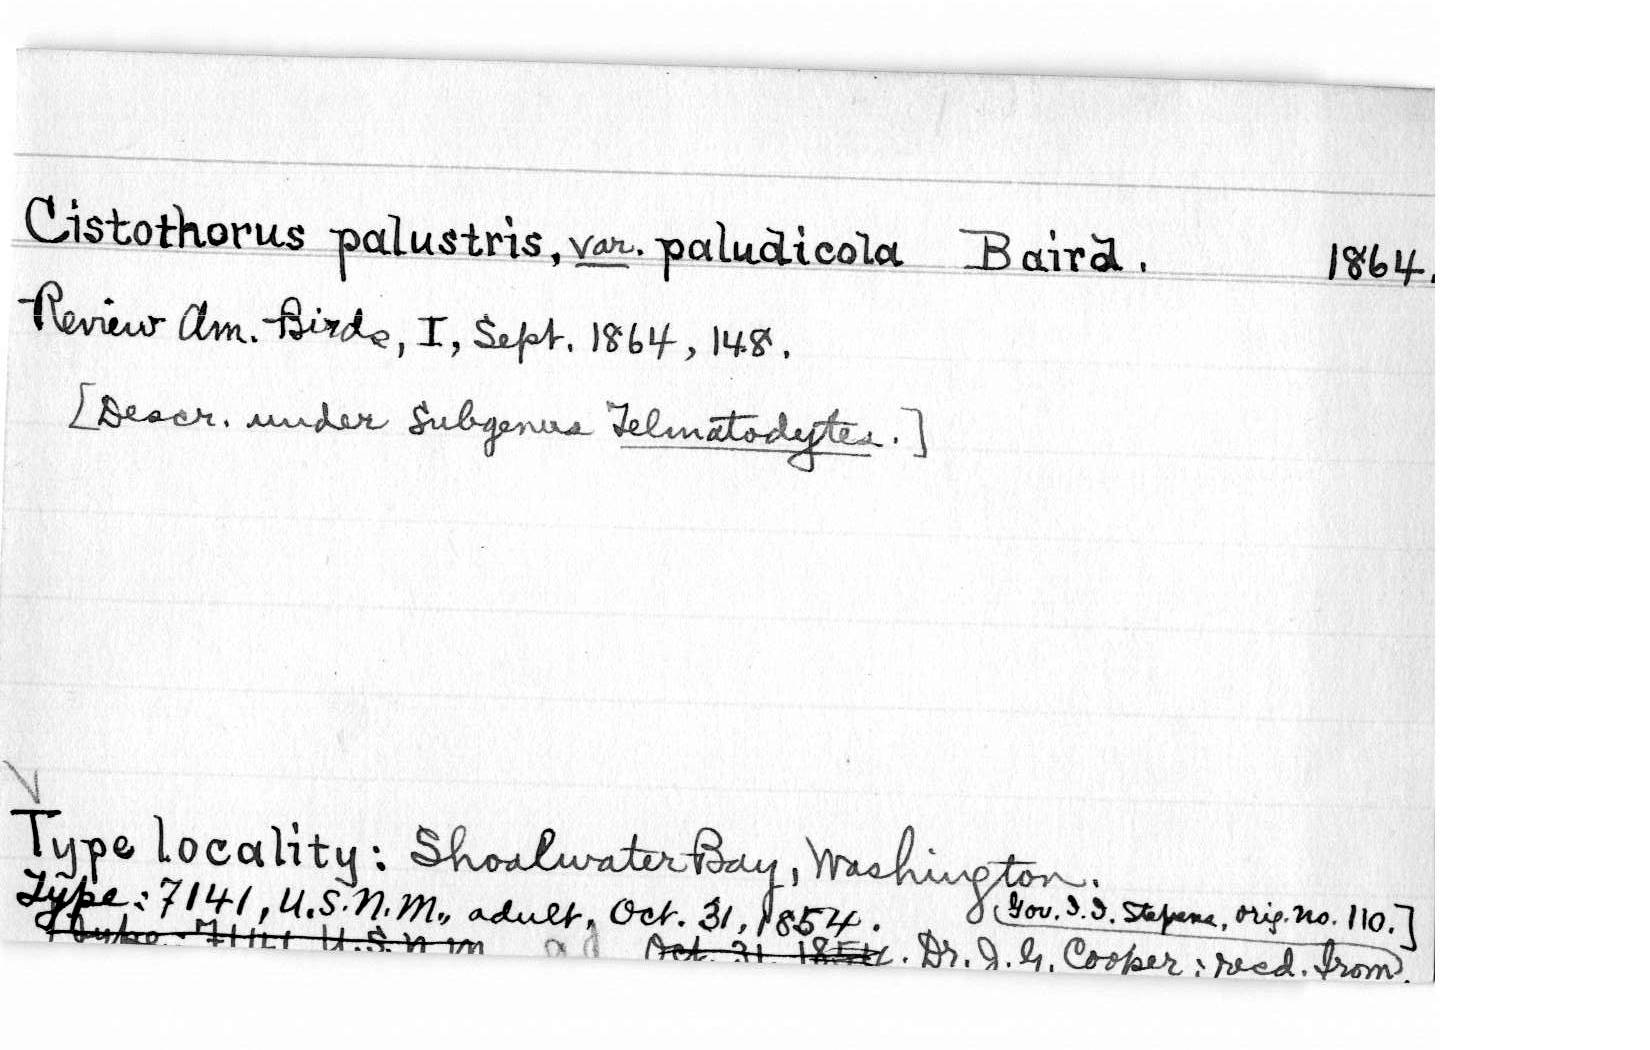 Cistothorus palustris, var. paludicola Baird. 1864.
Review Am. Birds, I, Sept. 1864, 148.
[Descr. under Subgenus Telmatodytes.]
Type locality: Shoalwater Bay, Washington.
Type: 7141, U.S.N.M., adult, Oct. 31, 1854. [Gov. I. I. Stevens, orig. no. 110.]
Type: 7141 U.S.N.M. ad Oct. 31, 1854. Dr. J. G. Cooper; recd. from